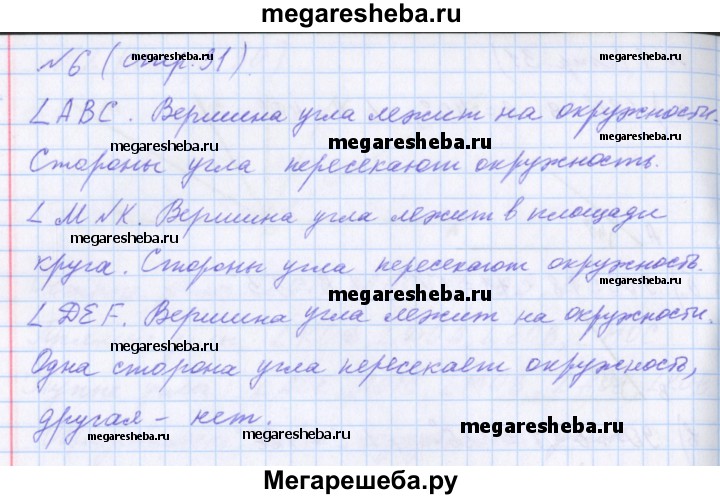 megaresheba.ru
№6 (стр. 91).
megaresheba.ru
megaresheba.ru
∠ABC. Вершина угла лежит на окружности.
megaresheba.ru
Стороны угла пересекают окружность.
∠MNK. Вершина угла лежит в площади
megaresheba.ru
круга. Стороны угла пересекают окружность.
megaresheba.ru
∠DEF. Вершина угла лежит на окружности.
megaresheba.ru
Одна сторона угла пересекает окружность,
другая – нет.
megaresheba.ru
megaresheba.ru
megaresheba.ru
Мегарешеба.ру